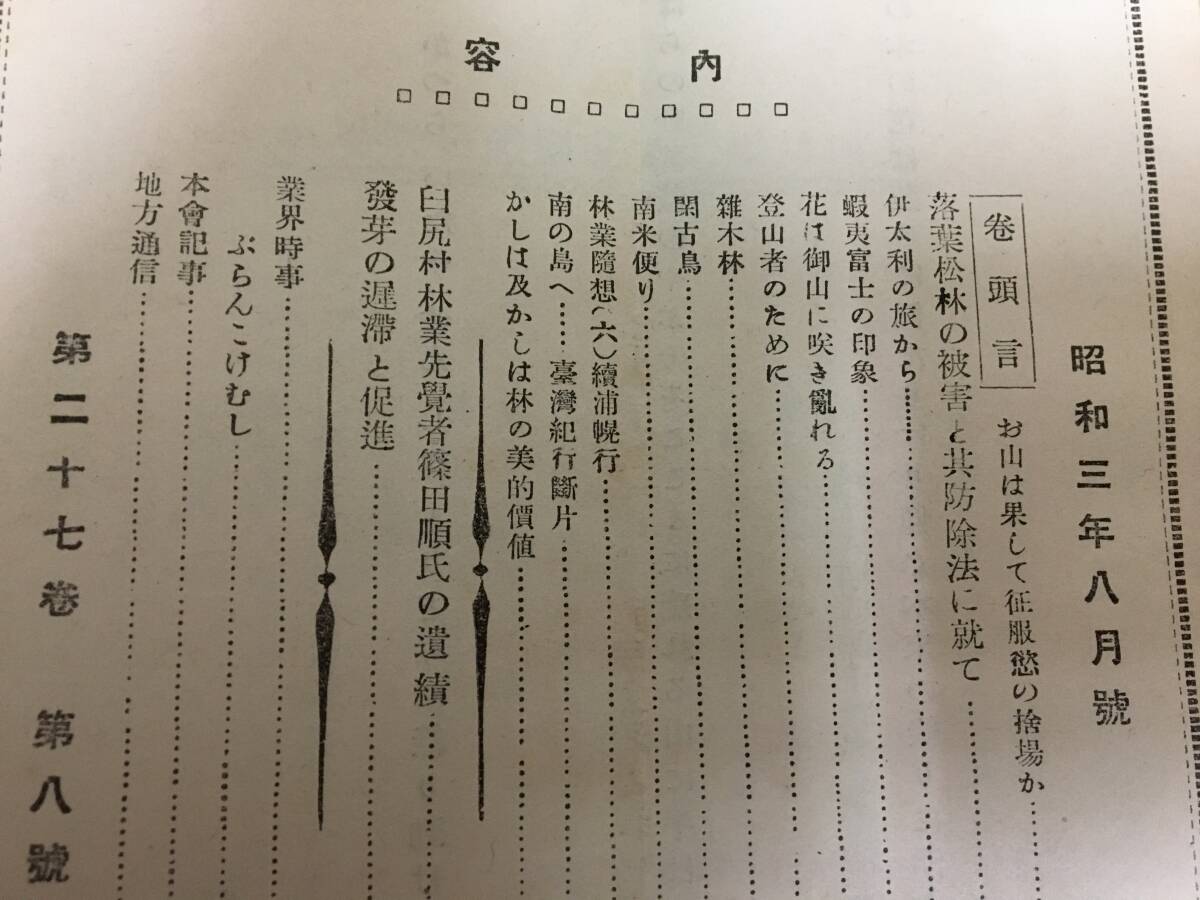 昭和三年八月號
內容
卷頭言
お山は果して征服慾の捨場か
落葉松林の被害と其防除法に就て
伊太利の旅から
蝦夷富士の印象
花は御山に咲き亂れる
登山者のために
雜木林
閑古鳥
南米便り
林業隨想(六)續浦幌行
南の島へ……臺灣紀行斷片
かしは及かしは林の美的價値
臼尻村林業先覺者篠田順氏の遺績
發芽の遲滯と促進
業界時事
ぶらんこけむし
本會記事
地方通信
第二十七卷 第八號